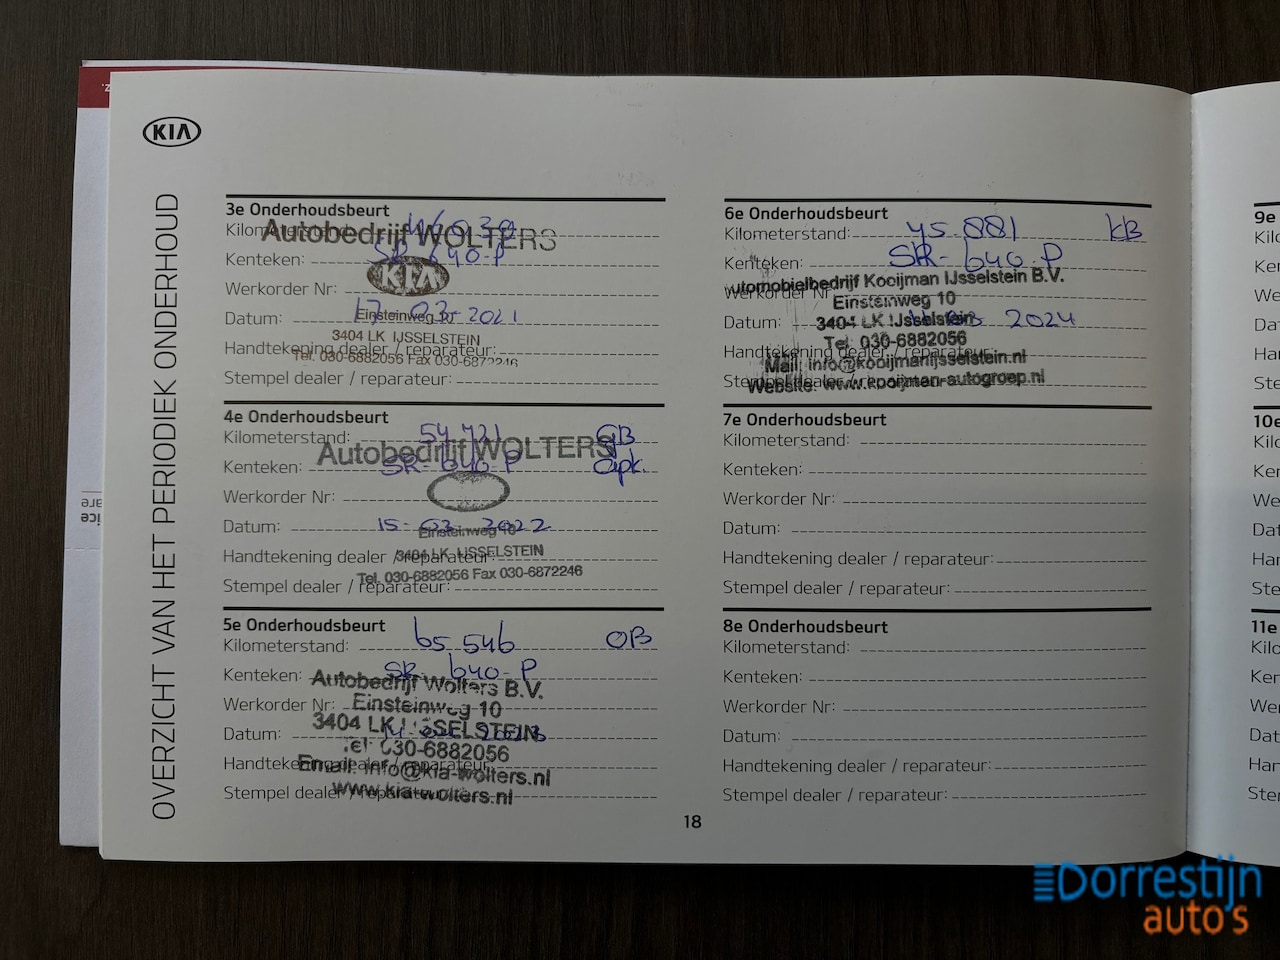 KIA
OVERZICHT VAN HET PERIODIEK ONDERHOUD
3e Onderhoudsbeurt
Kilometerstand: 46 039
Autobedrijf WOLTERS
Kenteken: SR-640-P
KIA
Werkorder Nr:
Einsteinweg 10
Datum: 17-03-2021
3404 LK IJSSELSTEIN
Handtekening dealer / reparateur:
Tel. 030-6882056 Fax 030-6872246
Stempel dealer / reparateur:
4e Onderhoudsbeurt
Kilometerstand: 54 721 GB
Autobedrijf WOLTERS
Kenteken: SR-640-P apk.
Werkorder Nr:
Datum: 15-03-2022
Einsteinweg 10
Handtekening dealer / reparateur:
3404 LK IJSSELSTEIN
Tel. 030-6882056 Fax 030-6872246
Stempel dealer / reparateur:
5e Onderhoudsbeurt
Kilometerstand: 65 546 OB
Kenteken: SR-640-P
Autobedrijf Wolters B.V.
Werkorder Nr:
Einsteinweg 10
3404 LK IJSSELSTEIN
Datum:
Tel 030-6882056
Handtekening dealer / reparateur:
Email: info@kia-wolters.nl
Stempel dealer / reparateur:
www.kia-wolters.nl
6e Onderhoudsbeurt
Kilometerstand: 75 881 KB
Kenteken: SR-640-P
utomobielbedrijf Kooijman IJsselstein B.V.
Werkorder Nr
Einsteinweg 10
Datum: 2024
3404 LK IJsselstein
Tel: 030-6882056
Handtekening dealer / reparateur:
Mail: info@kooijmanijsselstein.nl
Stempel dealer / reparateur:
Website: www.kooijman-autogroep.nl
7e Onderhoudsbeurt
Kilometerstand:
Kenteken:
Werkorder Nr:
Datum:
Handtekening dealer / reparateur:
Stempel dealer / reparateur:
8e Onderhoudsbeurt
Kilometerstand:
Kenteken:
Werkorder Nr:
Datum:
Handtekening dealer / reparateur:
Stempel dealer / reparateur:
18
9e
Kilo
Ker
We
Dat
Har
Ste
10e
Kilo
Ker
We
Dat
Har
Ste
11e
Kilo
Ker
Wer
Dat
Har
Ster
Dorrestijn
auto's